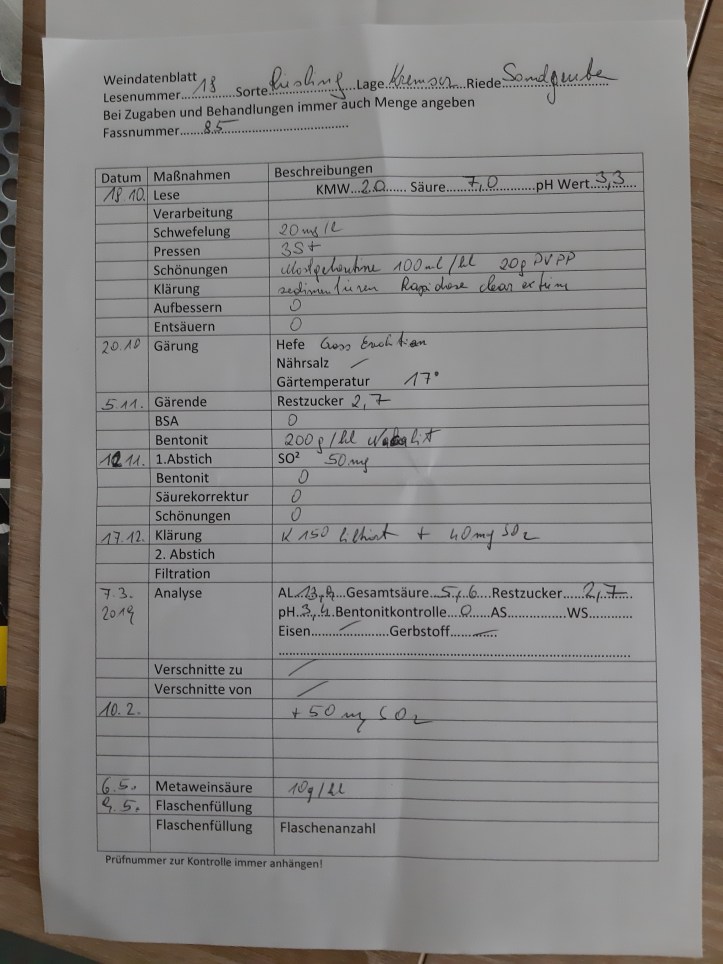 Weindatenblatt
Lesenummer 18 Sorte Riesling Lage Kremser Riede Sandgrube
Bei Zugaben und Behandlungen immer auch Menge angeben
Fassnummer 85
Datum Maßnahmen Beschreibungen
18 10. Lese KMW 20 Säure 7,0 pH Wert 3,3
Verarbeitung
Schwefelung 20 mg/l
Pressen 3St
Schönungen Mostgelatine 100ml/hl 20g PVPP
Klärung sedimentieren Rapidase clear extrem
Aufbessern 0
Entsäuern 0
20.10 Gärung Hefe Cross Evolution
Nährsalz /
Gärtemperatur 17°
5.11. Gärende Restzucker 2,7
BSA 0
Bentonit 200g/hl
12 11. 1.Abstich SO² 50mg
Bentonit 0
Säurekorrektur 0
Schönungen 0
17.12. Klärung K 150 filtriert + 40mg SO2
2. Abstich
Filtration
7.3. Analyse AL Gesamtsäure 5,6 Restzucker 2,7
2019 pH 3,4 Bentonitkontrolle 0 AS WS
Eisen / Gerbstoff /
Verschnitte zu /
Verschnitte von /
10.2. +50 mg SO2
6.5. Metaweinsäure 10g/hl
9.5. Flaschenfüllung
Flaschenfüllung Flaschenanzahl
Prüfnummer zur Kontrolle immer anhängen!